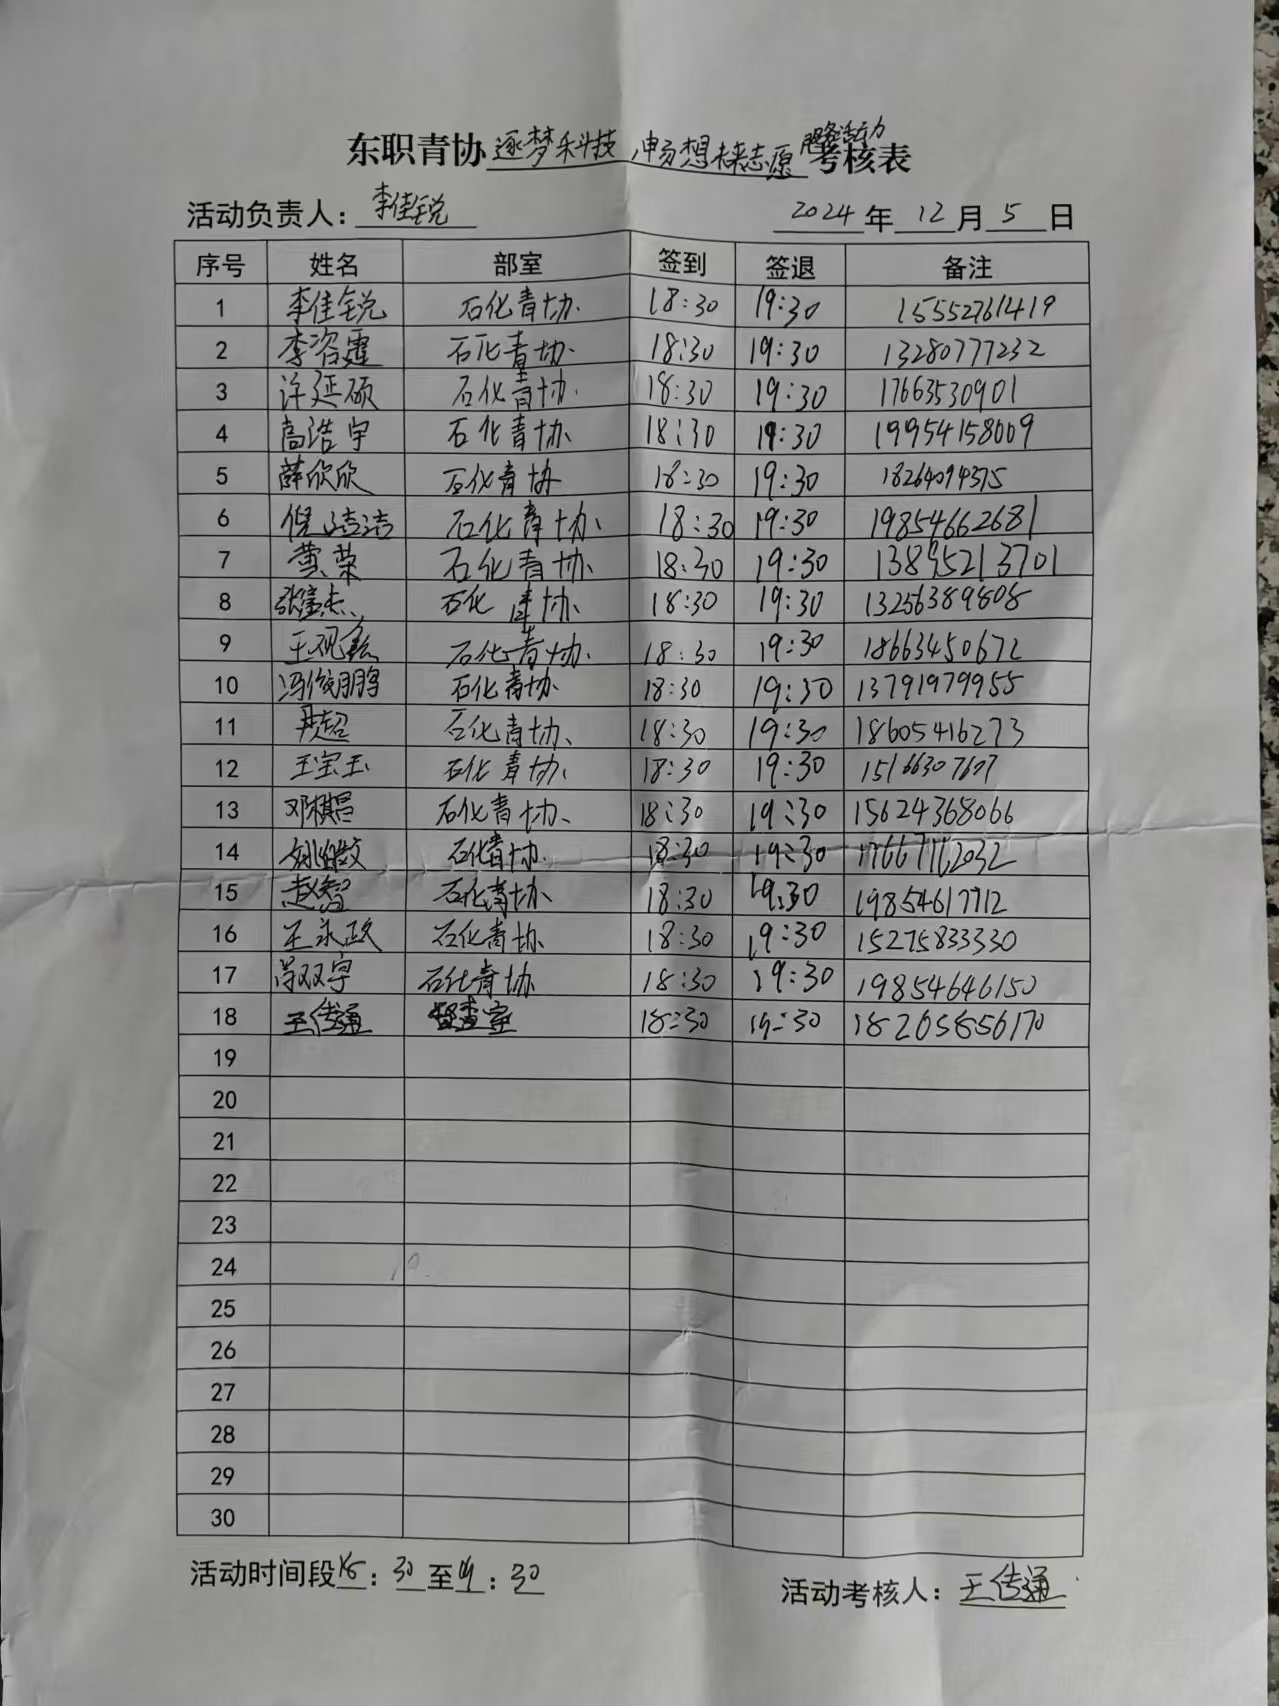 东职青协逐梦科技,畅想未来志愿服务活动考核表
活动负责人: 李佳锐 2024 年 12 月 5 日
序号 姓名 部室 签到 签退 备注
1 李佳锐 石化青协 18:30 19:30 15552761419
2 李润霆 石化青协 18:30 19:30 13280777232
3 许延硕 石化青协 18:30 19:30 17663530901
4 高浩宇 石化青协 18:30 19:30 19954158009
5 薛欣欣 石化青协 18:30 19:30 18264094375
6 倪洁洁 石化青协 18:30 19:30 19854662681
7 黄荣 石化青协 18:30 19:30 13895213701
8 石化青协 18:30 19:30 13256389808
9 石化青协 18:30 19:30 18663450672
10 冯俊鹏 石化青协 18:30 19:30 13791979955
11 石化青协 18:30 19:30 18605416273
12 王宝玉 石化青协 18:30 19:30 15166307607
13 邓棋昌 石化青协 18:30 19:30 15624368066
14 石化青协 18:30 19:30
15 赵智 石化青协 18:30 19:30 19854617712
16 王永政 石化青协 18:30 19:30 15275833330
17 石化青协 18:30 19:30 19854646150
18 王传通 督查室 18:30 19:30 18205856170
19
20
21
22
23
24
25
26
27
28
29
30
活动时间段18:30至19:30 活动考核人: 王传通